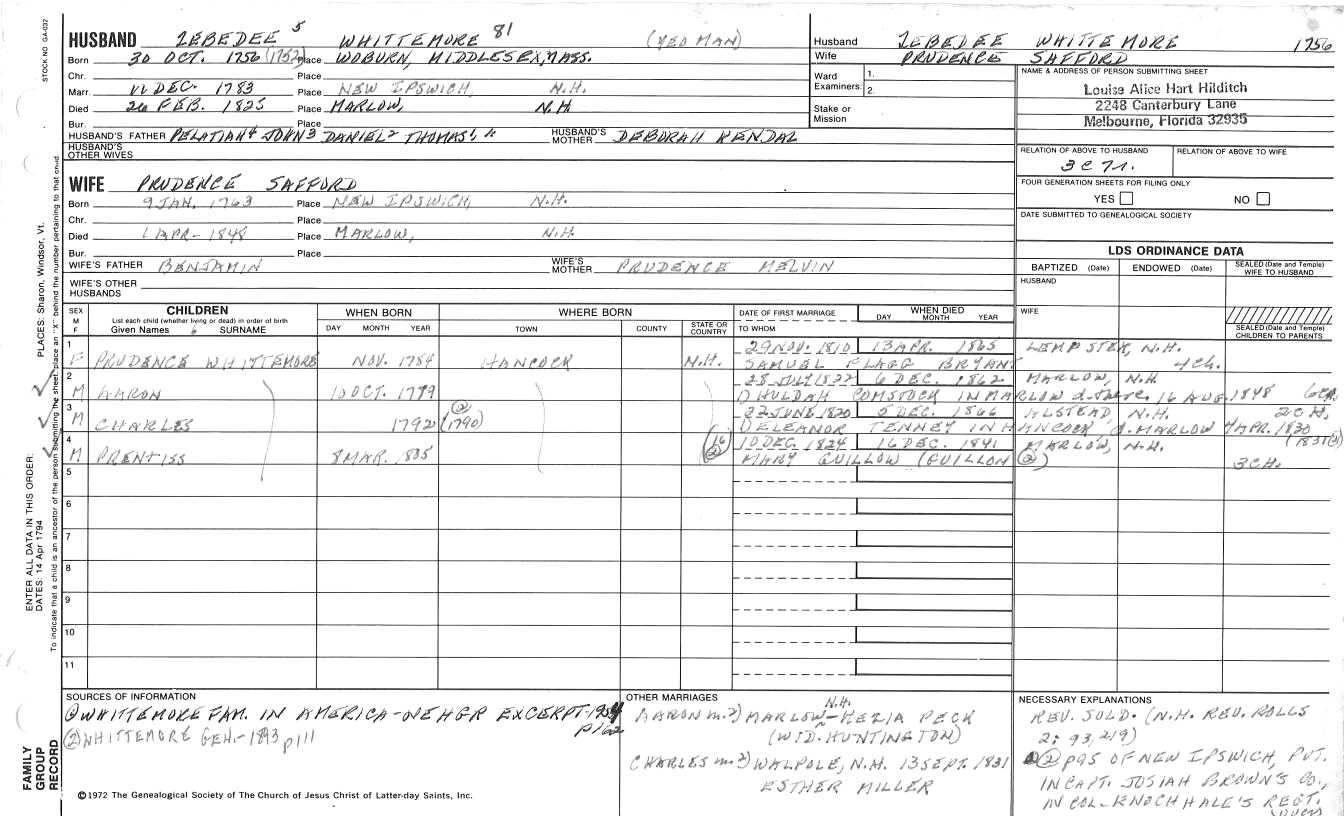 STOCK NO. GA-032
HUSBAND ZEBEDEE 5 WHITTEMORE 81 (YEOMAN)
Born 30 OCT. 1756 (1752) Place WOBURN, MIDDLESEX, MASS.
Chr. Place
Marr. 11 DEC. 1783 Place NEW IPSWICH, N.H.
Died 26 FEB. 1825 Place MARLOW, N.H.
Bur. Place
HUSBAND'S FATHER PELATIAH4 JOHN3 DANIEL2 THOMAS1 HUSBAND'S MOTHER DEBORAH KENDAL
HUSBAND'S OTHER WIVES
WIFE PRUDENCE SAFFORD
Born 9 JAN. 1763 Place NEW IPSWICH, N.H.
Chr. Place
Died APR- 1848 Place MARLOW, N.H.
Bur. Place
WIFE'S FATHER BENJAMIN WIFE'S MOTHER PRUDENCE MELVIN
WIFE'S OTHER HUSBANDS
Husband ZEBEDEE WHITTEMORE 1756
Wife PRUDENCE SAFFORD
Ward Examiners: 1. 2.
Stake or Mission
NAME & ADDRESS OF PERSON SUBMITTING SHEET
Louise Alice Hart Hilditch
2248 Canterbury Lane
Melbourne, Florida 32935
RELATION OF ABOVE TO HUSBAND RELATION OF ABOVE TO WIFE
3C7r.
FOUR GENERATION SHEETS FOR FILING ONLY
YES NO
DATE SUBMITTED TO GENEALOGICAL SOCIETY
LDS ORDINANCE DATA
BAPTIZED (Date) ENDOWED (Date) SEALED (Date and Temple) WIFE TO HUSBAND
HUSBAND
WIFE
SEALED (Date and Temple) CHILDREN TO PARENTS
SEX M F
CHILDREN
List each child (whether living or dead) in order of birth
Given Names 6 SURNAME
WHEN BORN
DAY MONTH YEAR
WHERE BORN
TOWN COUNTY STATE OR COUNTRY
DATE OF FIRST MARRIAGE
TO WHOM
WHEN DIED
DAY MONTH YEAR
1 29 NOV. 1810 13 APR. 1865 LEMPSTER, N.H.
F PRUDENCE WHITTEMORE NOV. 1784 HANCOCK N.H. SAMUEL FLAGG BRYANT 4 Ch.
2 28 JULY 1822 6 DEC. 1862 MARLOW, N.H.
M AARON 10 OCT. 1789 1) HULDAH COMSTOCK IN MARLOW d. there, 16 AUG. 1848 6 CH.
3 22 JUNE 1820 5 DEC. 1866 ALSTEAD, N.H. 2 CH.
M CHARLES 1792 (2) (1790) 1) ELEANOR TENNEY IN HANCOCK, d. MARLOW 7 APR. 1830 (1831(2))
4 (16 (2)) 10 DEC. 1824 16 DEC. 1841 MARLOW, N.H.
M PRENTISS 8 MAR. 1805 MARY GUILLOW (GUILLON (2)) 3 CH.
5
6
7
8
9
10
11
SOURCES OF INFORMATION
(1) WHITTEMORE FAM. IN AMERICA-NEHGR EXCERPT-1954 p162
(2) WHITTEMORE GEN.-1893 p111
OTHER MARRIAGES
AARON m. 2) MARLOW, N.H. - KEZIA PECK
(WID. HUNTINGTON)
CHARLES m. 2) WALPOLE, N.H. 13 SEPT. 1831
ESTHER MILLER
NECESSARY EXPLANATIONS
REV. SOLD. (N.H. REV. ROLLS
2: 93, 219)
(2) p95 OF NEW IPSWICH, PVT.
IN CAPT. JOSIAH BROWN'S CO.,
IN COL. ENOCH HALE'S REGT.
(OVER)
©1972 The Genealogical Society of The Church of Jesus Christ of Latter-day Saints, Inc.
FAMILY
GROUP
RECORD
ENTER ALL DATA IN THIS ORDER:
DATES: 14 Apr 1794 PLACES: Sharon, Windsor, Vt.
To indicate that a child is an ancestor of the person submitting the sheet, place an "X" behind the number pertaining to that child.